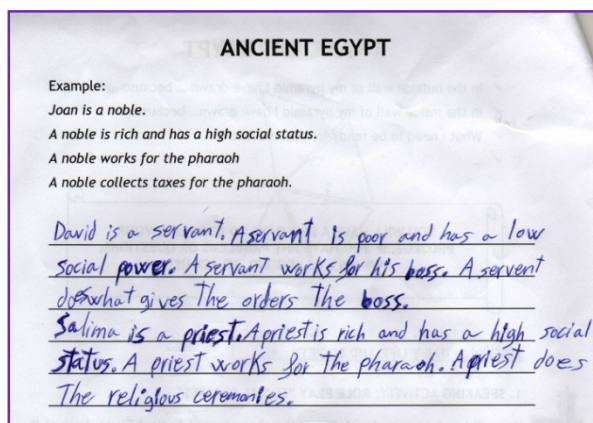 ANCIENT EGYPT
Example:
Joan is a noble.
A noble is rich and has a high social status.
A noble works for the pharaoh
A noble collects taxes for the pharaoh.
David is a servant. A servant is poor and has a low
social power. A servant works for his boss. A servent
does what gives The orders The boss.
Salima is a priest. A priest is rich and has a high social
status. A priest works for the pharaoh. A priest does
The religious ceremonies.